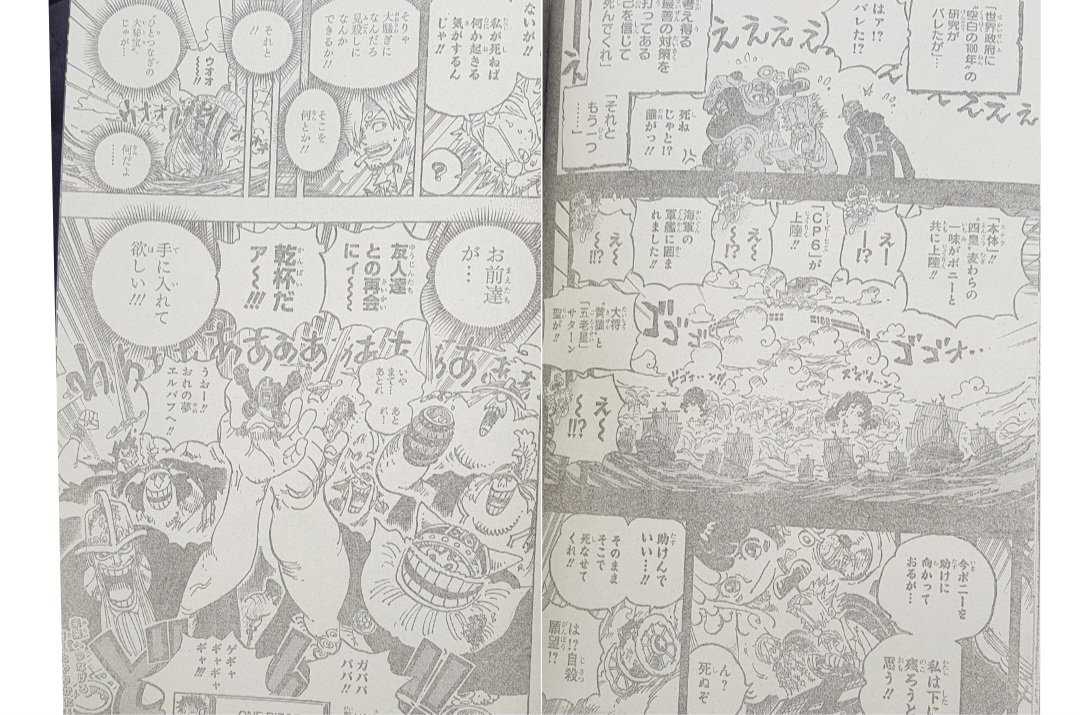 「世界政府に
“空白の100年”の
研究が
バレたが…
はァ!?
バレた!?
考え得る
最善の対策を
打ってある
己を信じて
死んでくれ」
えええ
えええええ
死ね
じゃと!?
誰がっ!!
「それと
もう一つ
……」
「本体!!
“四皇”麦わらの
一味がボニーと
共に上陸!!
えー
ー!?
「CP6」が
上陸!!
え〜
〜!?
海軍の
軍艦に囲ま
れました!!
え〜
〜!!?
大将
“黄猿”と
「五老星」
サターン
聖が!!
え〜
〜!!?
ゴゴゴ
ゴゴオ…
今ボニーを
助けに
向かって
おるが…
私は下に
残ろうと
思う!!
死ぬぞ
助けんで
いい…!!
そのまま
そこで
死なせて
くれ!!
は!?自殺
願望!?
ないが!!
私が死ねば
何か起きる
気がするん
じゃ!!
?
そりゃ
大騒ぎに
なんだろ
見殺しに
なんか
できるか!!
そこを
何とか!!
それと
!!
ひとつなぎの
大秘宝
じゃが…!
ウオオ
〜〜!!
ウオオ
何だよ
……
お前達
が…
友人達
との再会
にィ〜〜
乾杯だ
ア〜〜!!!
手に入れて
欲しい!!!
いや
まて…
あとれ
あと
れ…
うおー!!
おれの夢
エルバフへ!!
ガババ
ババ!!
ゲギャ
ギャギャ
ギャ!!!